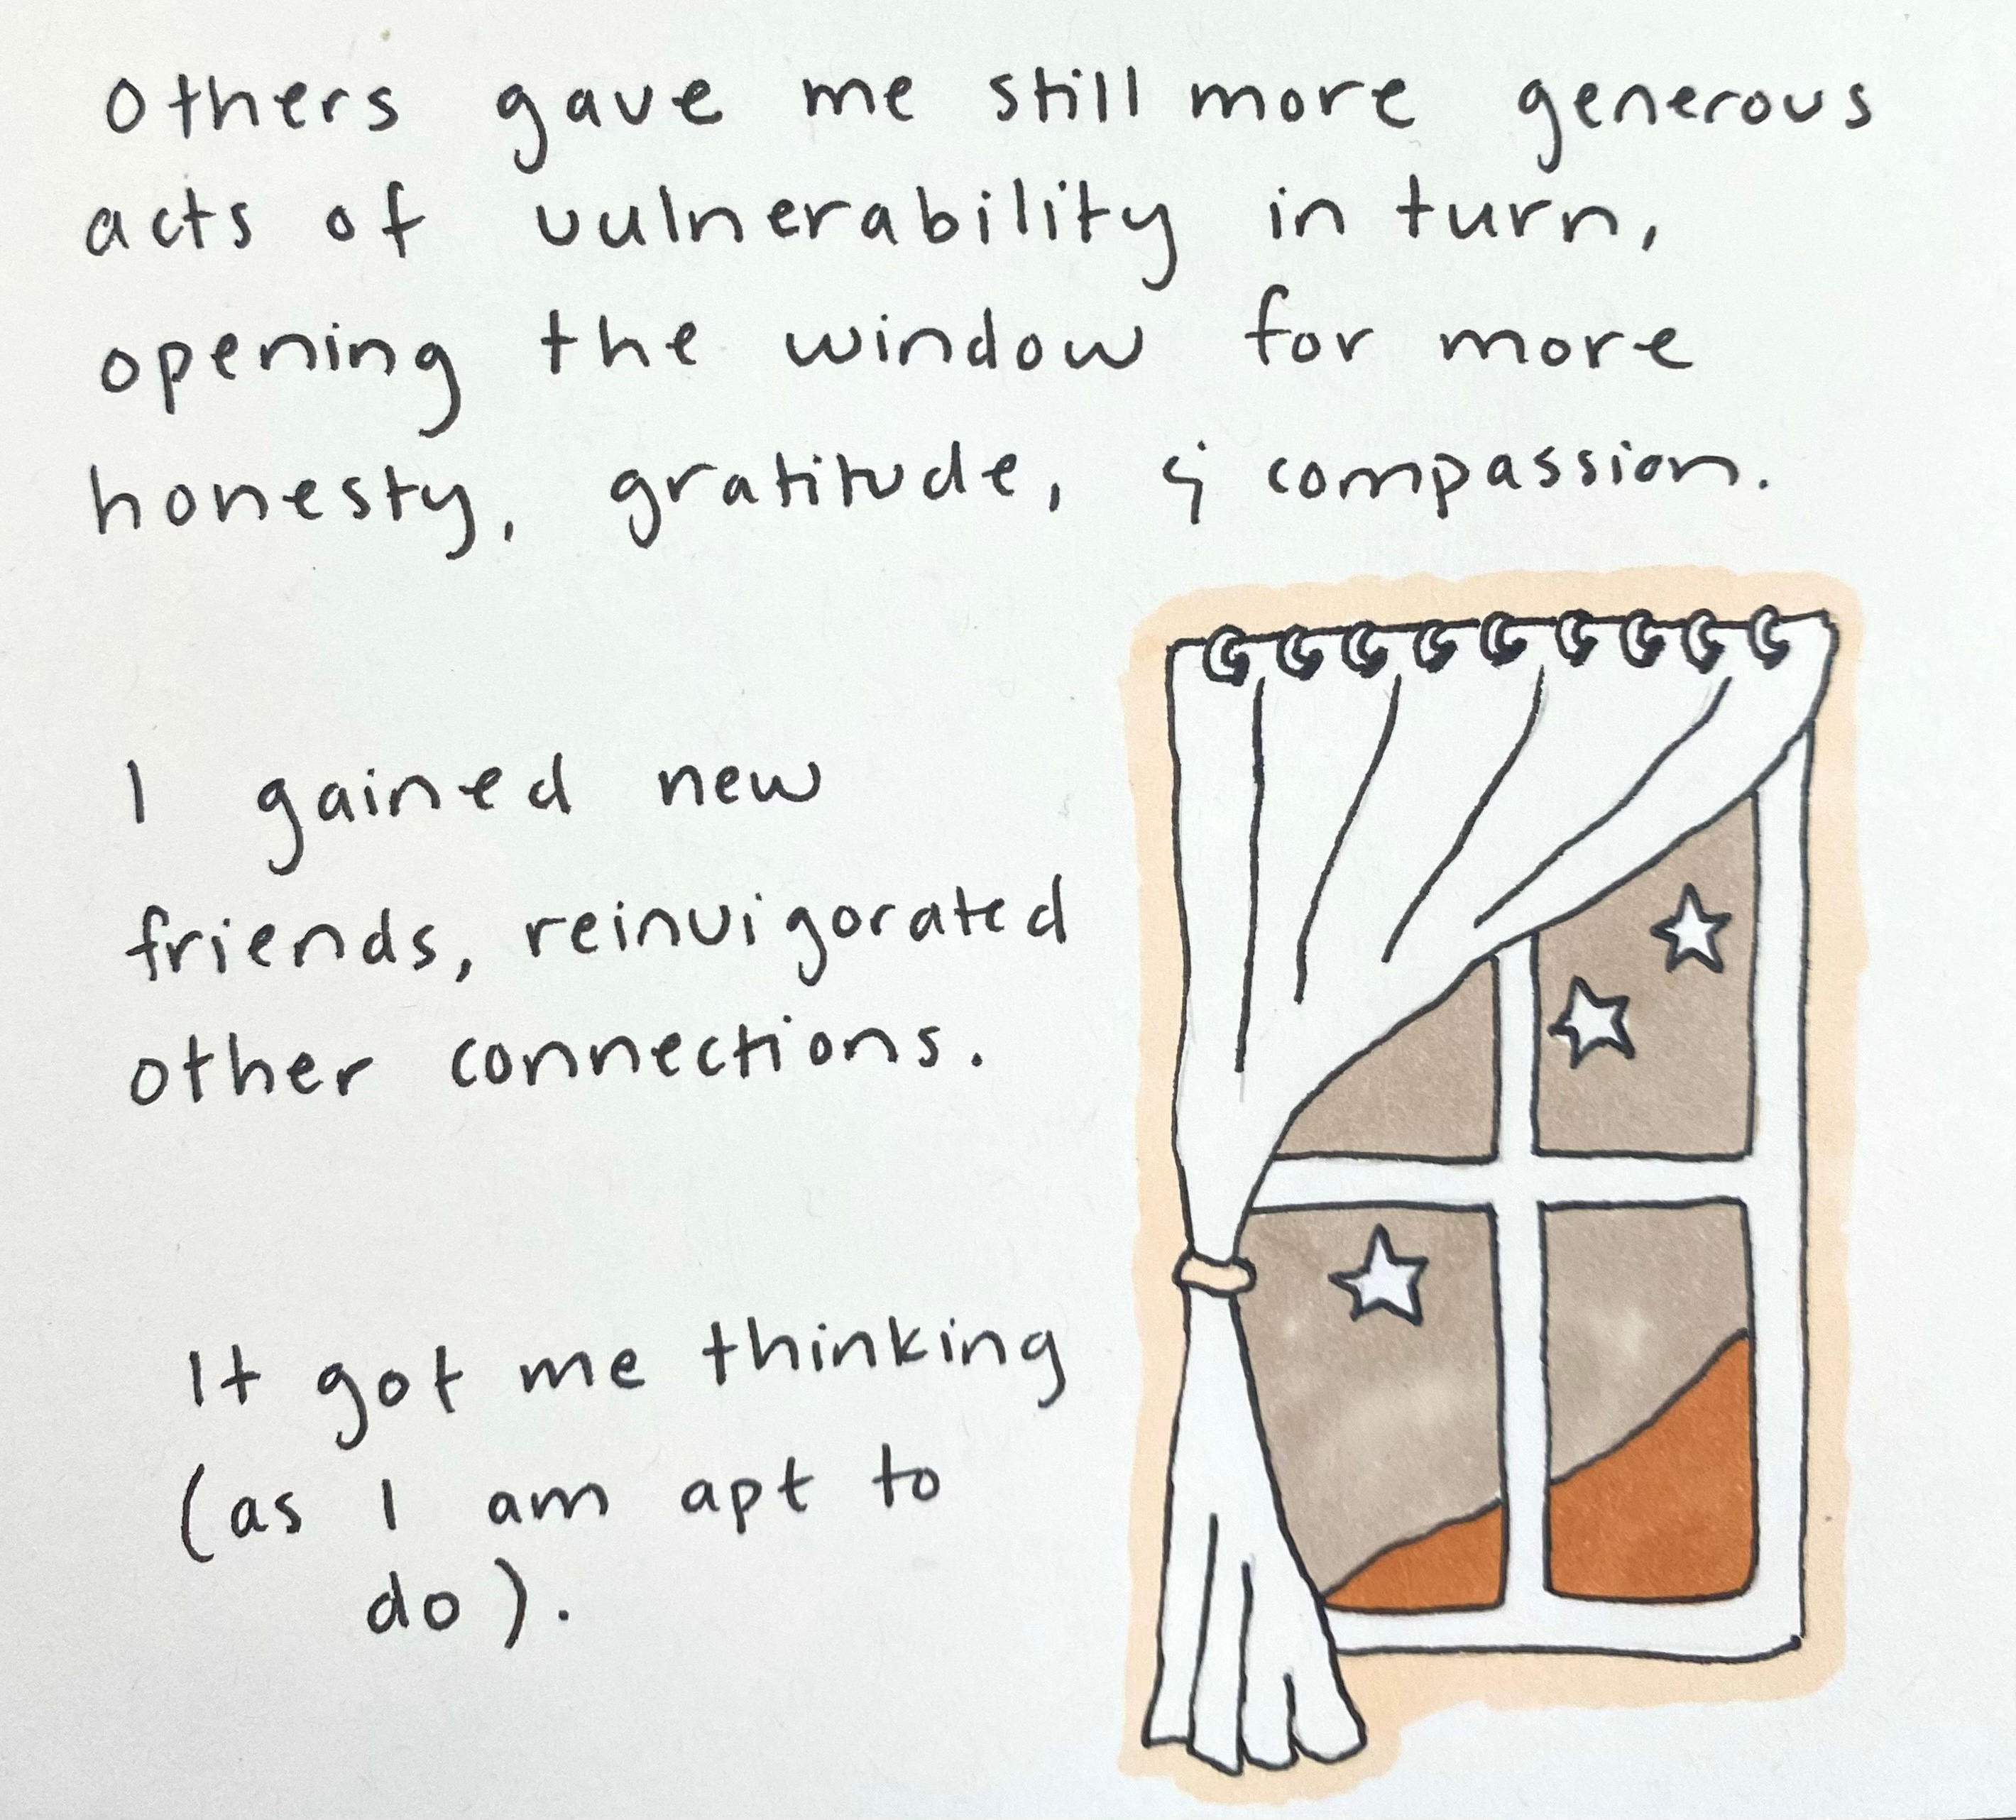 others gave me still more generous
acts of vulnerability in turn,
opening the window for more
honesty, gratitude, & compassion.
I gained new
friends, reinvigorated
other connections.
It got me thinking
(as I am apt to
do).